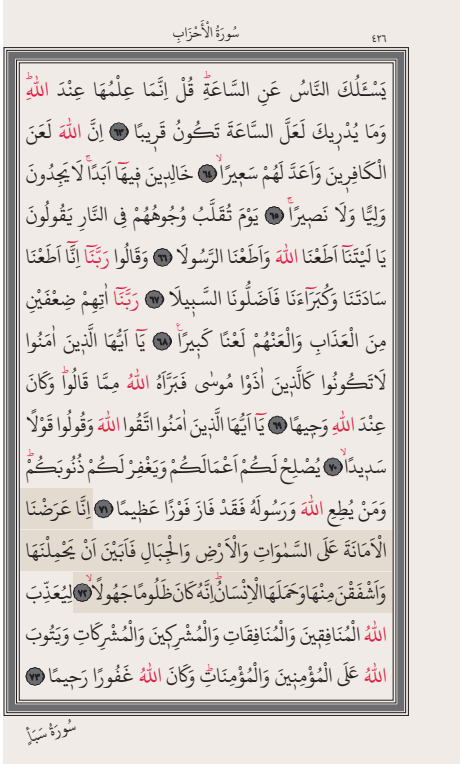 سُورَةُ الْأَحْزَابِ
٤٢٦
يَسْـَٔلُكَ النَّاسُ عَنِ السَّاعَةِۜ قُلْ اِنَّمَا عِلْمُهَا عِنْدَ اللّٰهِۜ
وَمَا يُدْر۪يكَ لَعَلَّ السَّاعَةَ تَكُونُ قَر۪يبًا ﴿٦٣﴾ اِنَّ اللّٰهَ لَعَنَ
الْكَافِر۪ينَ وَاَعَدَّ لَهُمْ سَع۪يرًاۙ ﴿٦٤﴾ خَالِد۪ينَ ف۪يهَٓا اَبَدًاۚ لَا يَجِدُونَ
وَلِيًّا وَلَا نَص۪يرًاۚ ﴿٦٥﴾ يَوْمَ تُقَلَّبُ وُجُوهُهُمْ فِي النَّارِ يَقُولُونَ
يَا لَيْتَنَٓا اَطَعْنَا اللّٰهَ وَاَطَعْنَا الرَّسُولَا ﴿٦٦﴾ وَقَالُوا رَبَّنَٓا اِنَّٓا اَطَعْنَا
سَادَتَنَا وَكُبَرَٓاءَنَا فَاَضَلُّونَا السَّب۪يلَا ﴿٦٧﴾ رَبَّنَٓا اٰتِهِمْ ضِعْفَيْنِ
مِنَ الْعَذَابِ وَالْعَنْهُمْ لَعْنًا كَب۪يرًا۟ ﴿٦٨﴾ يَٓا اَيُّهَا الَّذ۪ينَ اٰمَنُوا
لَا تَكُونُوا كَالَّذ۪ينَ اٰذَوْا مُوسٰى فَبَرَّاَهُ اللّٰهُ مِمَّا قَالُواۜ وَكَانَ
عِنْدَ اللّٰهِ وَج۪يهًا ﴿٦٩﴾ يَٓا اَيُّهَا الَّذ۪ينَ اٰمَنُوا اتَّقُوا اللّٰهَ وَقُولُوا قَوْلًا
سَد۪يدًاۙ ﴿٧٠﴾ يُصْلِحْ لَكُمْ اَعْمَالَكُمْ وَيَغْفِرْ لَكُمْ ذُنُوبَكُمْۜ
وَمَنْ يُطِعِ اللّٰهَ وَرَسُولَهُ فَقَدْ فَازَ فَوْزًا عَظ۪يمًا ﴿٧١﴾ اِنَّا عَرَضْنَا
الْاَمَانَةَ عَلَى السَّمٰوَاتِ وَالْاَرْضِ وَالْجِبَالِ فَاَبَيْنَ اَنْ يَحْمِلْنَهَا
وَاَشْفَقْنَ مِنْهَا وَحَمَلَهَا الْاِنْسَانُۜ اِنَّهُ كَانَ ظَلُومًا جَهُولًاۙ ﴿٧٢﴾ لِيُعَذِّبَ
اللّٰهُ الْمُنَافِق۪ينَ وَالْمُنَافِقَاتِ وَالْمُشْرِك۪ينَ وَالْمُشْرِكَاتِ وَيَتُوبَ
اللّٰهُ عَلَى الْمُؤْمِن۪ينَ وَالْمُؤْمِنَاتِۜ وَكَانَ اللّٰهُ غَفُورًا رَح۪يمًا ﴿٧٣﴾
سُورَةُ سَبَأٍ